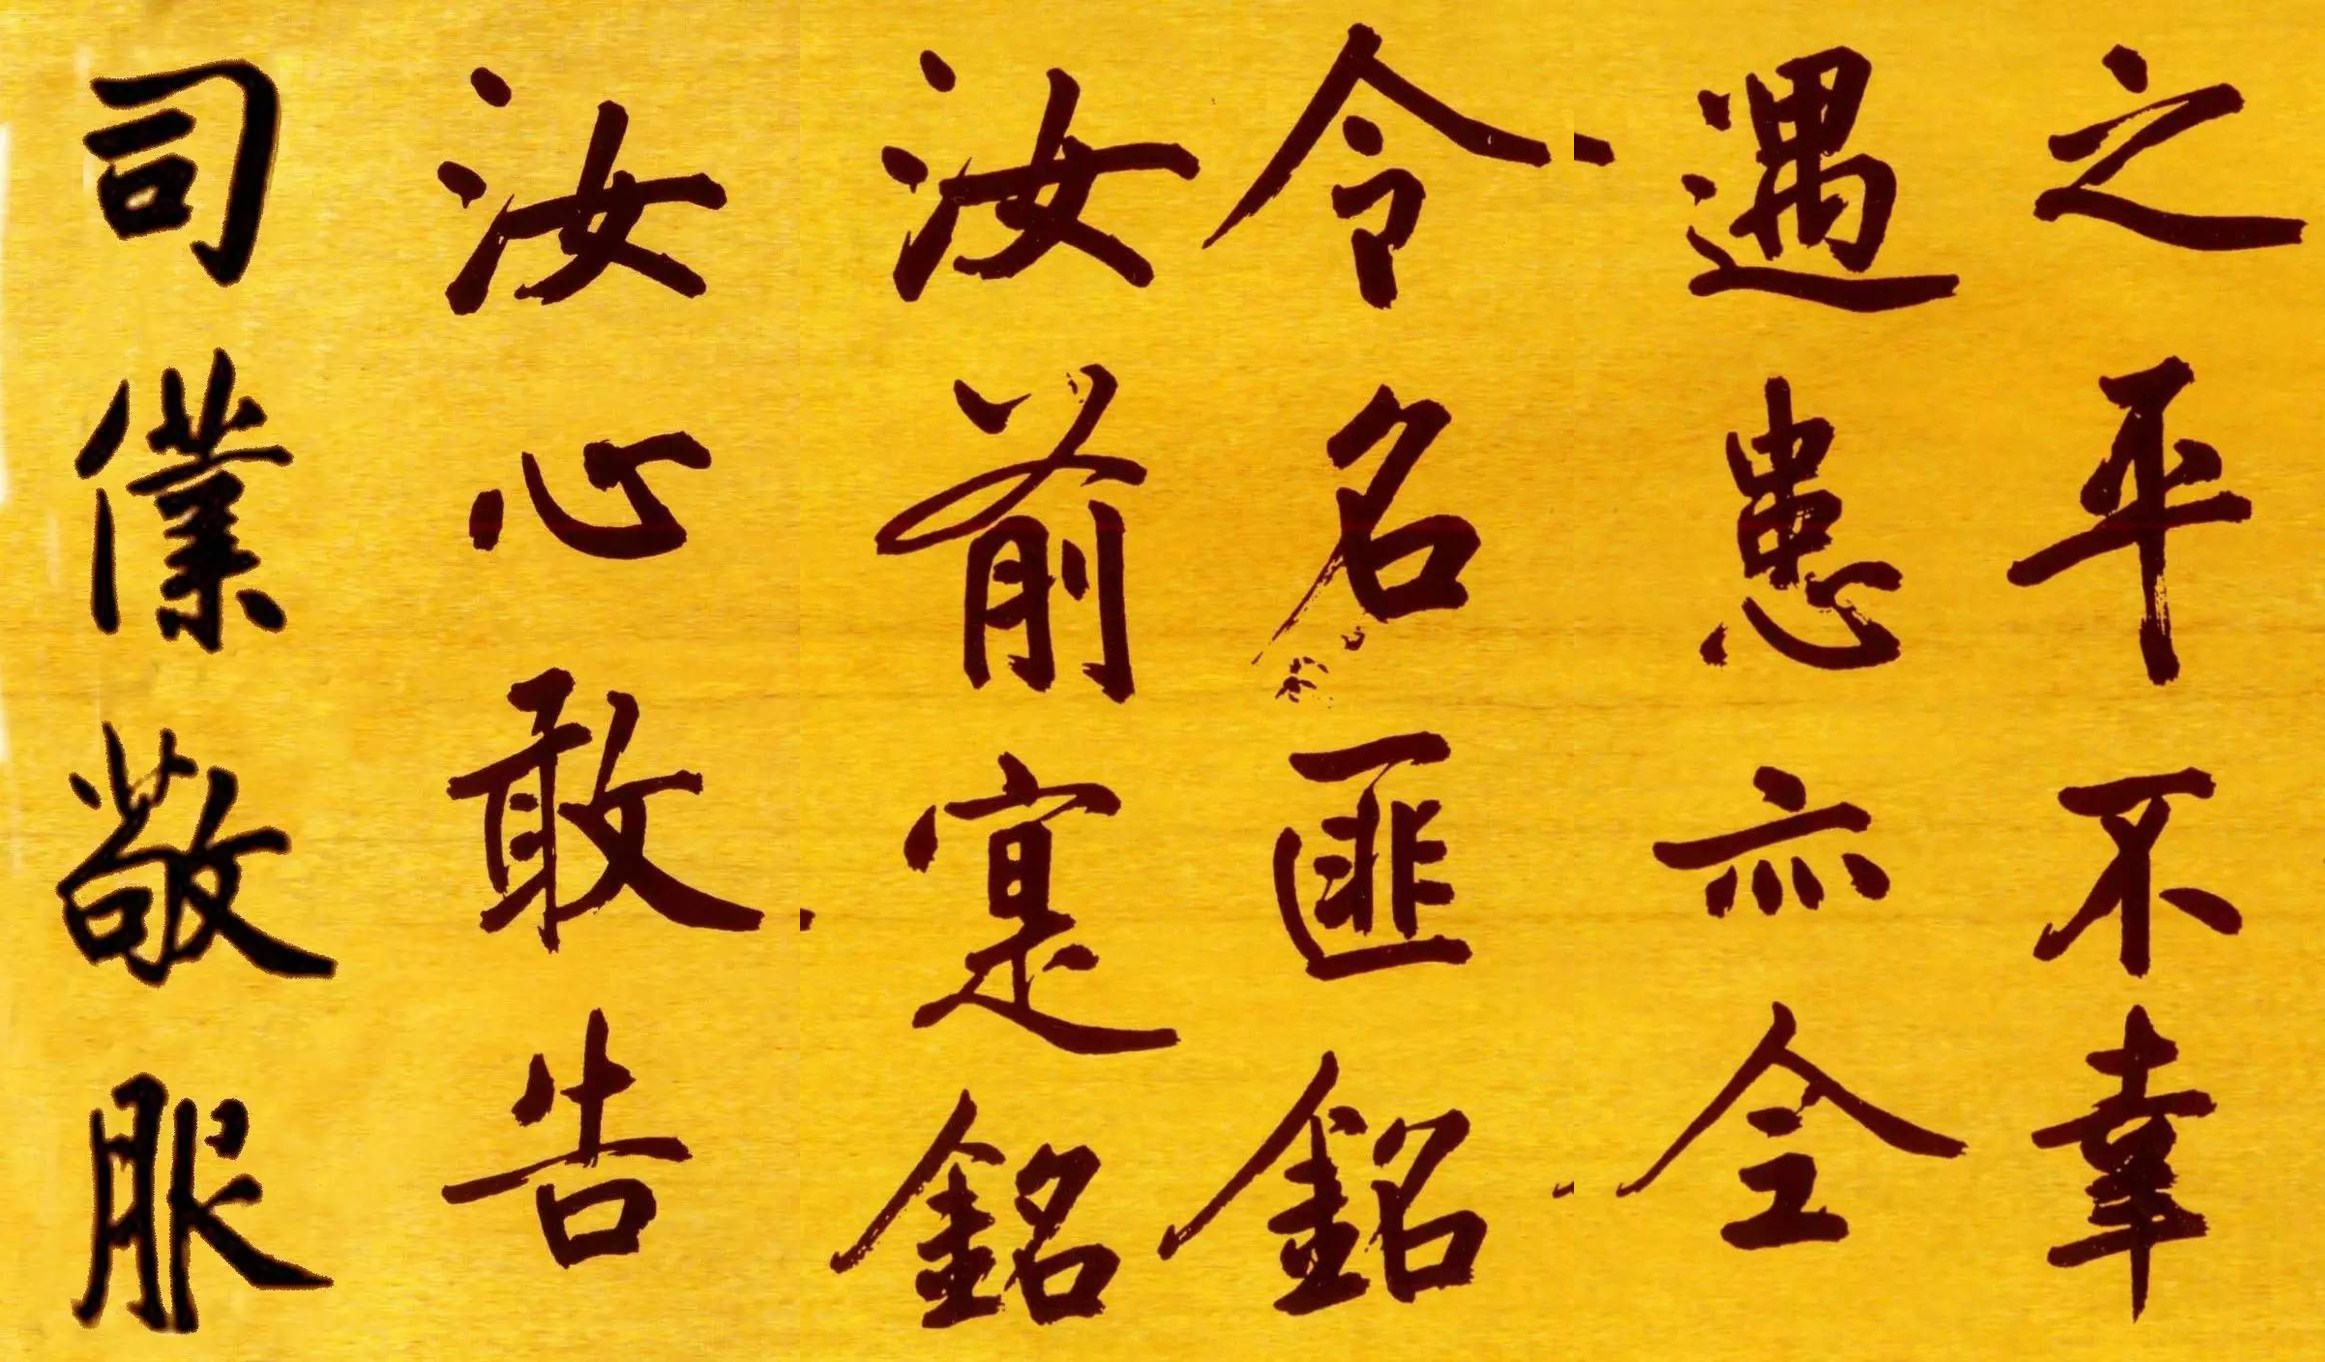 之平不幸
遇患亦全
令名匪銘
汝前寔銘
汝心敢告
司僕敬服